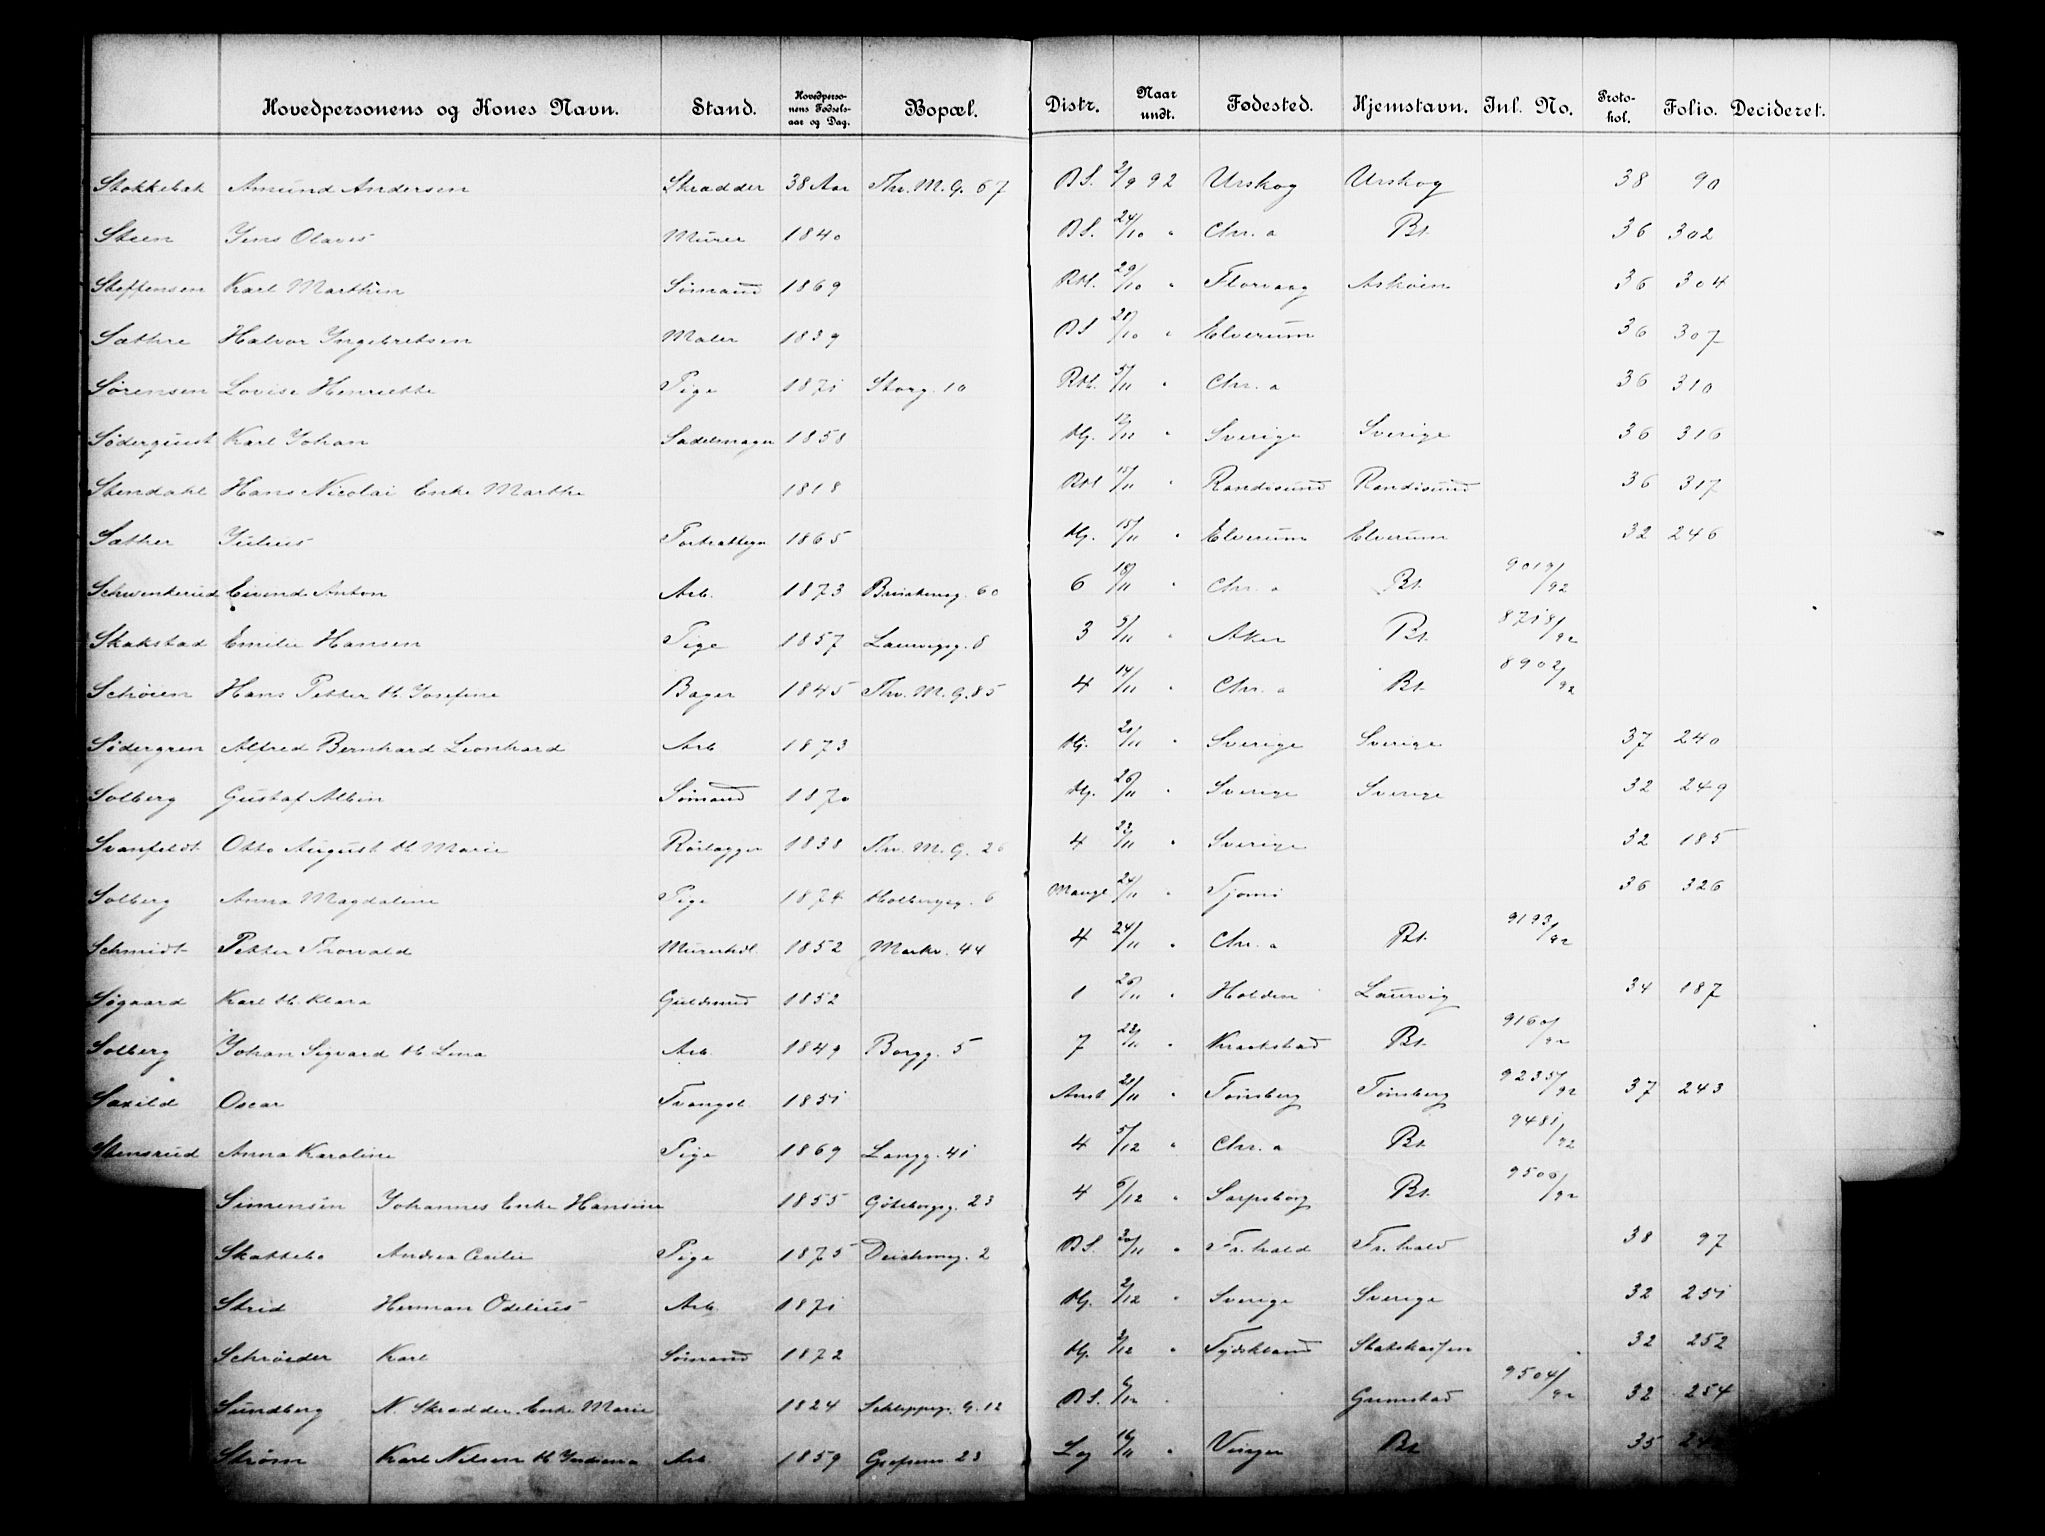 Hovedpersonens og Kones Navn. Stand. Hovedpersonens Fødselsaar og Dag. Bopæl. Distr. Naar undt. Fødested. Hjemstavn. Inl. No. Protokol. Folio. Decideret.
Stokkebak Amund Andersen Skrædder 38 Aar Thv. M. G. 67 B.S. 2/9 92 Urskog Urskog 38 90
Steen Jens Olaves Murer 1840 B.S. 24/10 " Chr.a Bt. 36 302
Steffensen Karl Marthin Sømand 1869 RH. 29/10 " Florvaag Askøen 36 304
Sæthre Halvor Ingebretsen Maler 1839 B.S /10 " Elverum 36 307
Sørensen Lovise Henriette Pige 1871 Storg. 10 RH. 5/11 " Chr.a 36 310
Søderquist Karl Johan Sadelmager 1858 Hj. " Sverige Sverige 36 316
Stendahl Hans Nicolai Enke Marthe 1818 RH 15/11 " Randesund Randesund 36 317
Sæther Julius 1865 Hj. 15/11 " Elverum Elverum 32 246
Schwenkerud Eivind Anton Arb. 1873 Brinkenvg. 60 6 18/11 " Chr.a Bt. 9019/92
Skakstad Emilie Hansen Pige 1857 Laurvigg. 8 3 5/11 " Aker Bt. 8718/92
Schøien Hans Petter & Josefine Bager 1845 Thv. M. G. 85 4 14/11 " Chr.a Bt. 8902/92
Södergren Alfred Bernhard Leonhard Arb 1873 Hj. 21/11 " Sverige Sverige 37 240
Solberg Gustaf Albin Sømand 1870 Hj. 26/11 " Sverige Sverige 32 249
Svanfeldt Otto August & Marie Rørlægger 1838 Thv. M. G. 26 4 /11 " Sverige 32 185
Solberg Anna Magdalene Pige 1874 Holbergsg. 6 Mangl 24/11 " Tjømø 36 326
Schmidt Petter Thorvald Murerhdl. 1852 Markv. 44 4 24/11 " Chr.a Bt. 9193/92
Søgaard Karl & Klara Guldsmed 1852 1 26/11 " Holden Laurvig 34 187
Solberg Johan Sigvard & Lina Arb. 1849 Borgg. 5 7 23/11 " Kraakstad Bt. 9160/92
Saxild Oscar Tvangsl. 1851 Amb 21/11 " Tønsberg Tønsberg 9235/92 37 243
Stensrud Anna Karoline Pige 1869 Langg. 41 4 5/12 " Chr.a Bt. 9481/92
Simensen Johannes Enke Hansine 1855 Göteborgg. 23 4 6/12 " Sarpsborg Bt. 9500/92
Skattebo Andrea Cecilie Pige 1875 Deichmsg. 2 B.S. 30/11 " Fr.hald Fr.hald 38 97
Strid Herman Odelius Arb 1871 Hj. 2/12 " Sverige Sverige 32 251
Schrøder Karl Sømand 1872 Hj. 3/12 " Tydskland Statskassen 32 252
Sundberg N. Skrædder. Enke Marie 1824 Schleppeg. G. 12 B.S. 6/12 " Grimstad 9504/92 32 254
Strøm Karl Nilsen & Indiana Arb 1859 Grefsenv 23 Log 16/11 " Vinger Bt 35